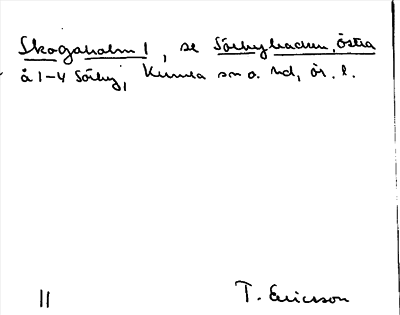 Skogaholm 1, se Sörbybacken, östra
å 1-4 Sörby, Kumla sn o. hd, ör. l.
11 T. Ericsson